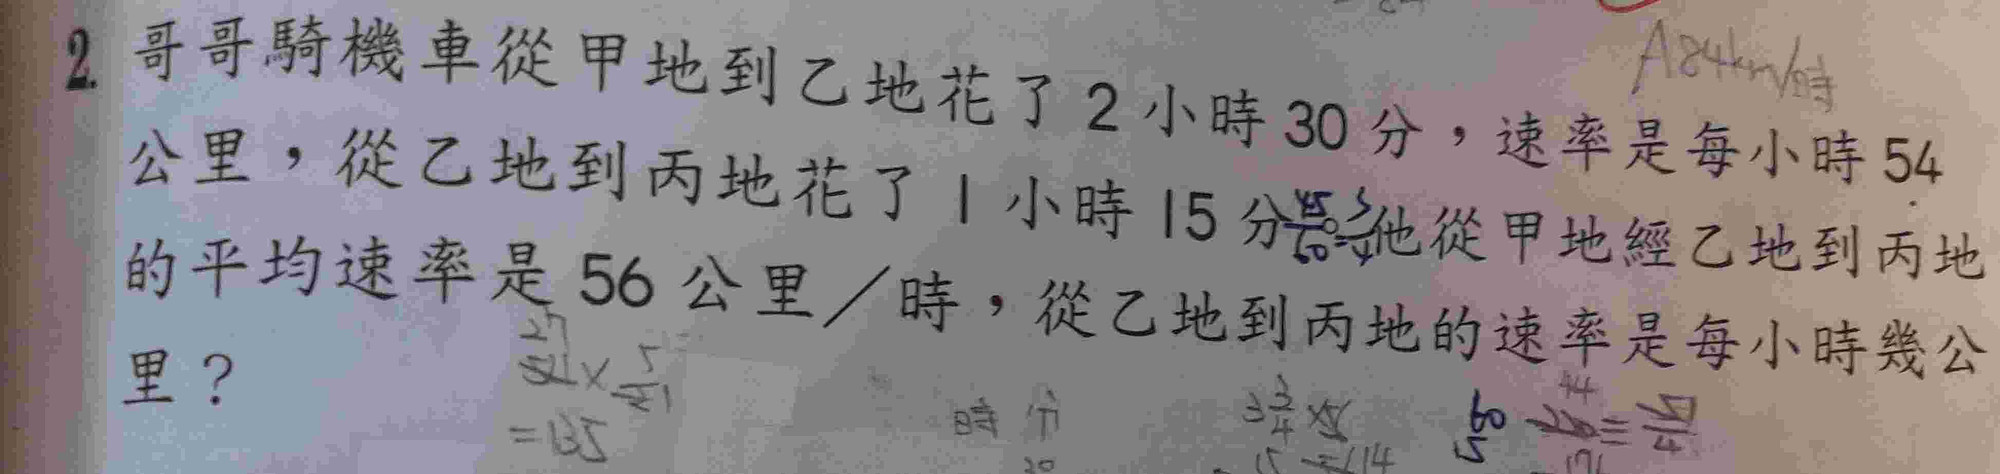 A84km/時
2. 哥哥騎機車從甲地到乙地花了2小時30分，速率是每小時54
公里，從乙地到丙地花了1小時15分 他從甲地經乙地到丙地
的平均速率是56公里／時，從乙地到丙地的速率是每小時幾公
里？
27
54×5/2 1
=135
時 分
3 3/4 ×56